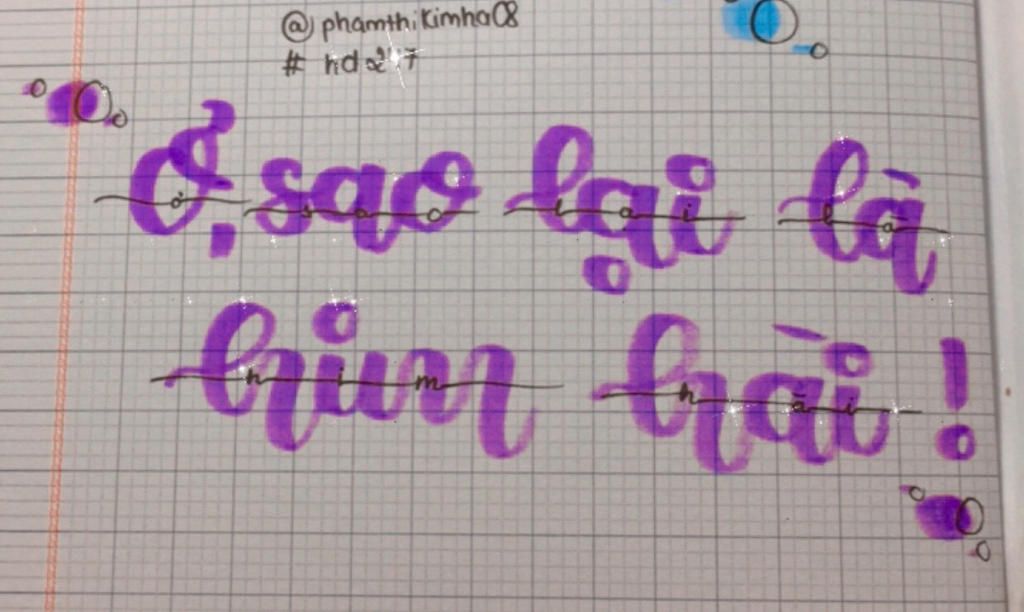 @phamthikimha08
#
Ở, sao lại là
him hài!